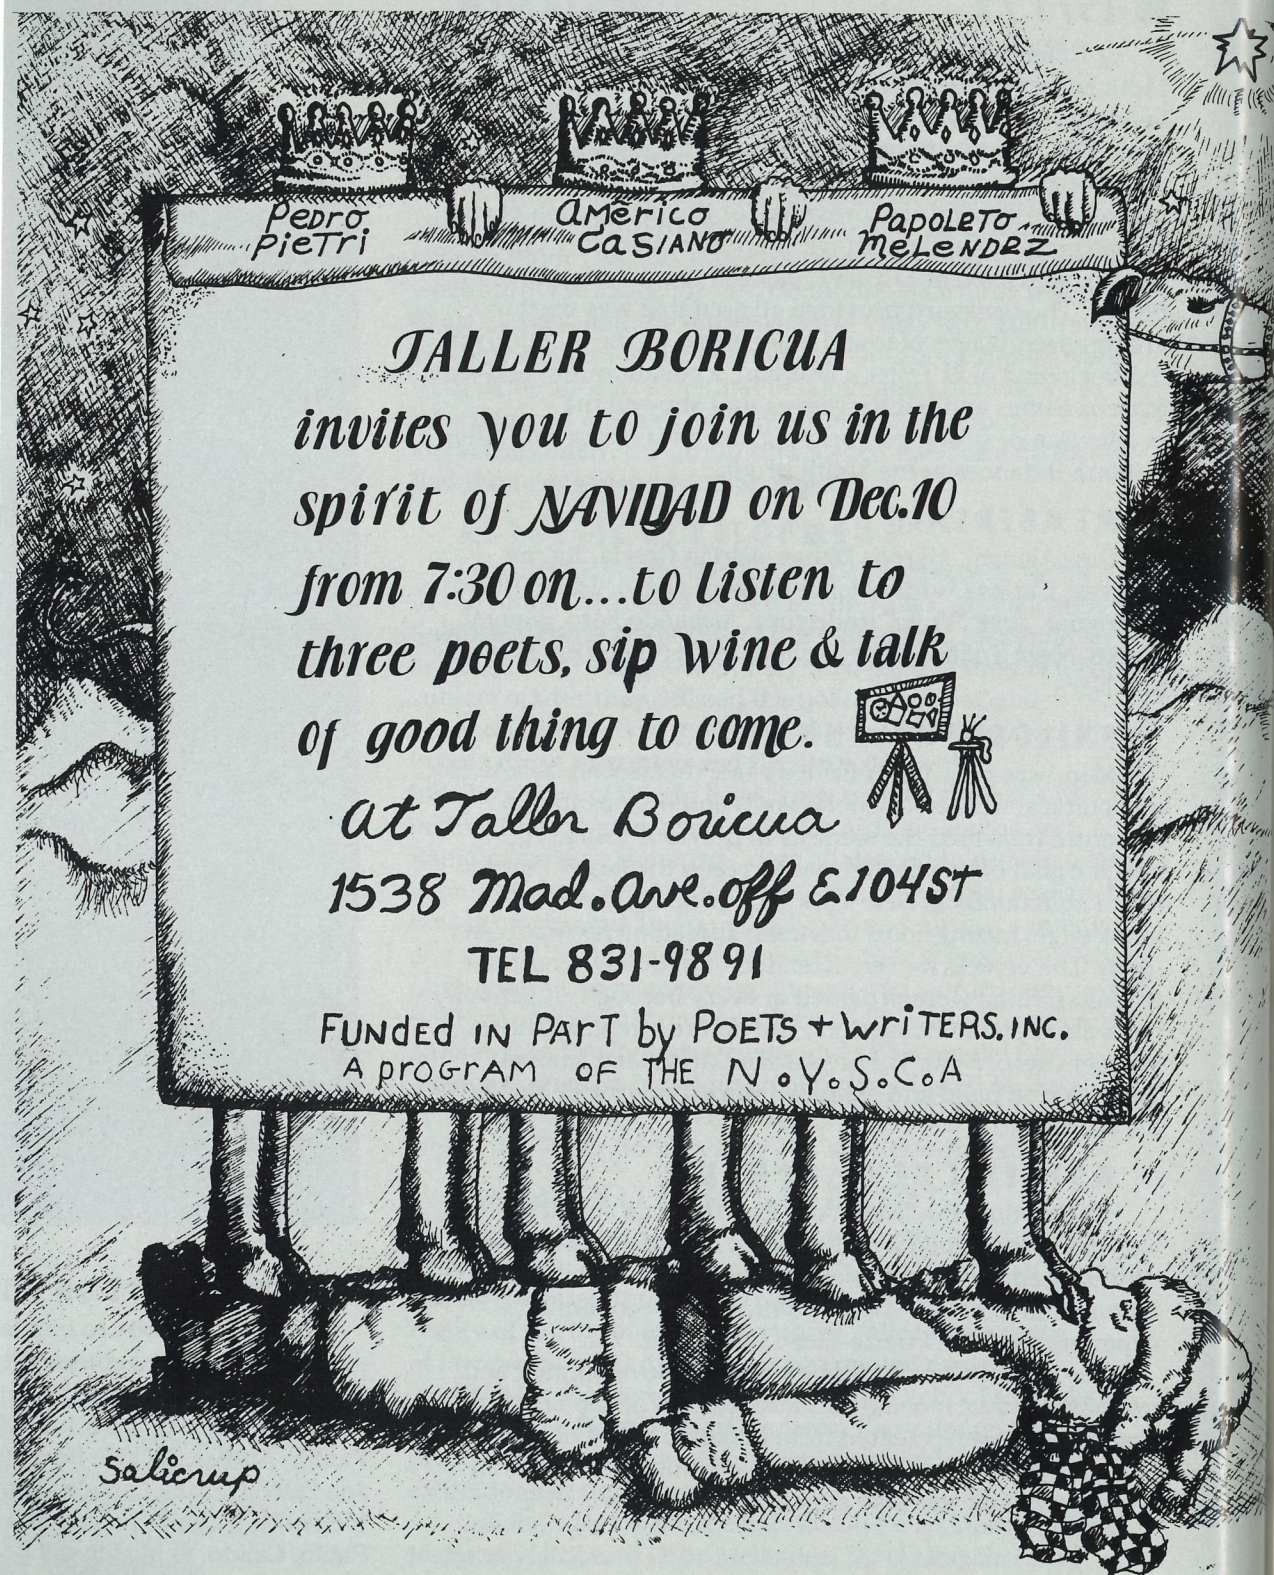 Pedro
Pietri
Américo
Casiano
Papoleto
Melendez
TALLER BORICUA
invites you to join us in the
spirit of NAVIDAD on Dec. 10
from 7:30 on...to listen to
three poets, sip wine & talk
of good thing to come.
at Taller Boricua
1538 Mad. Ave. off E 104 St
TEL 831-9891
FUNDED IN PART by POETS + WRITERS. INC.
A PROGRAM OF THE N.Y.S.C.A
Salicrup